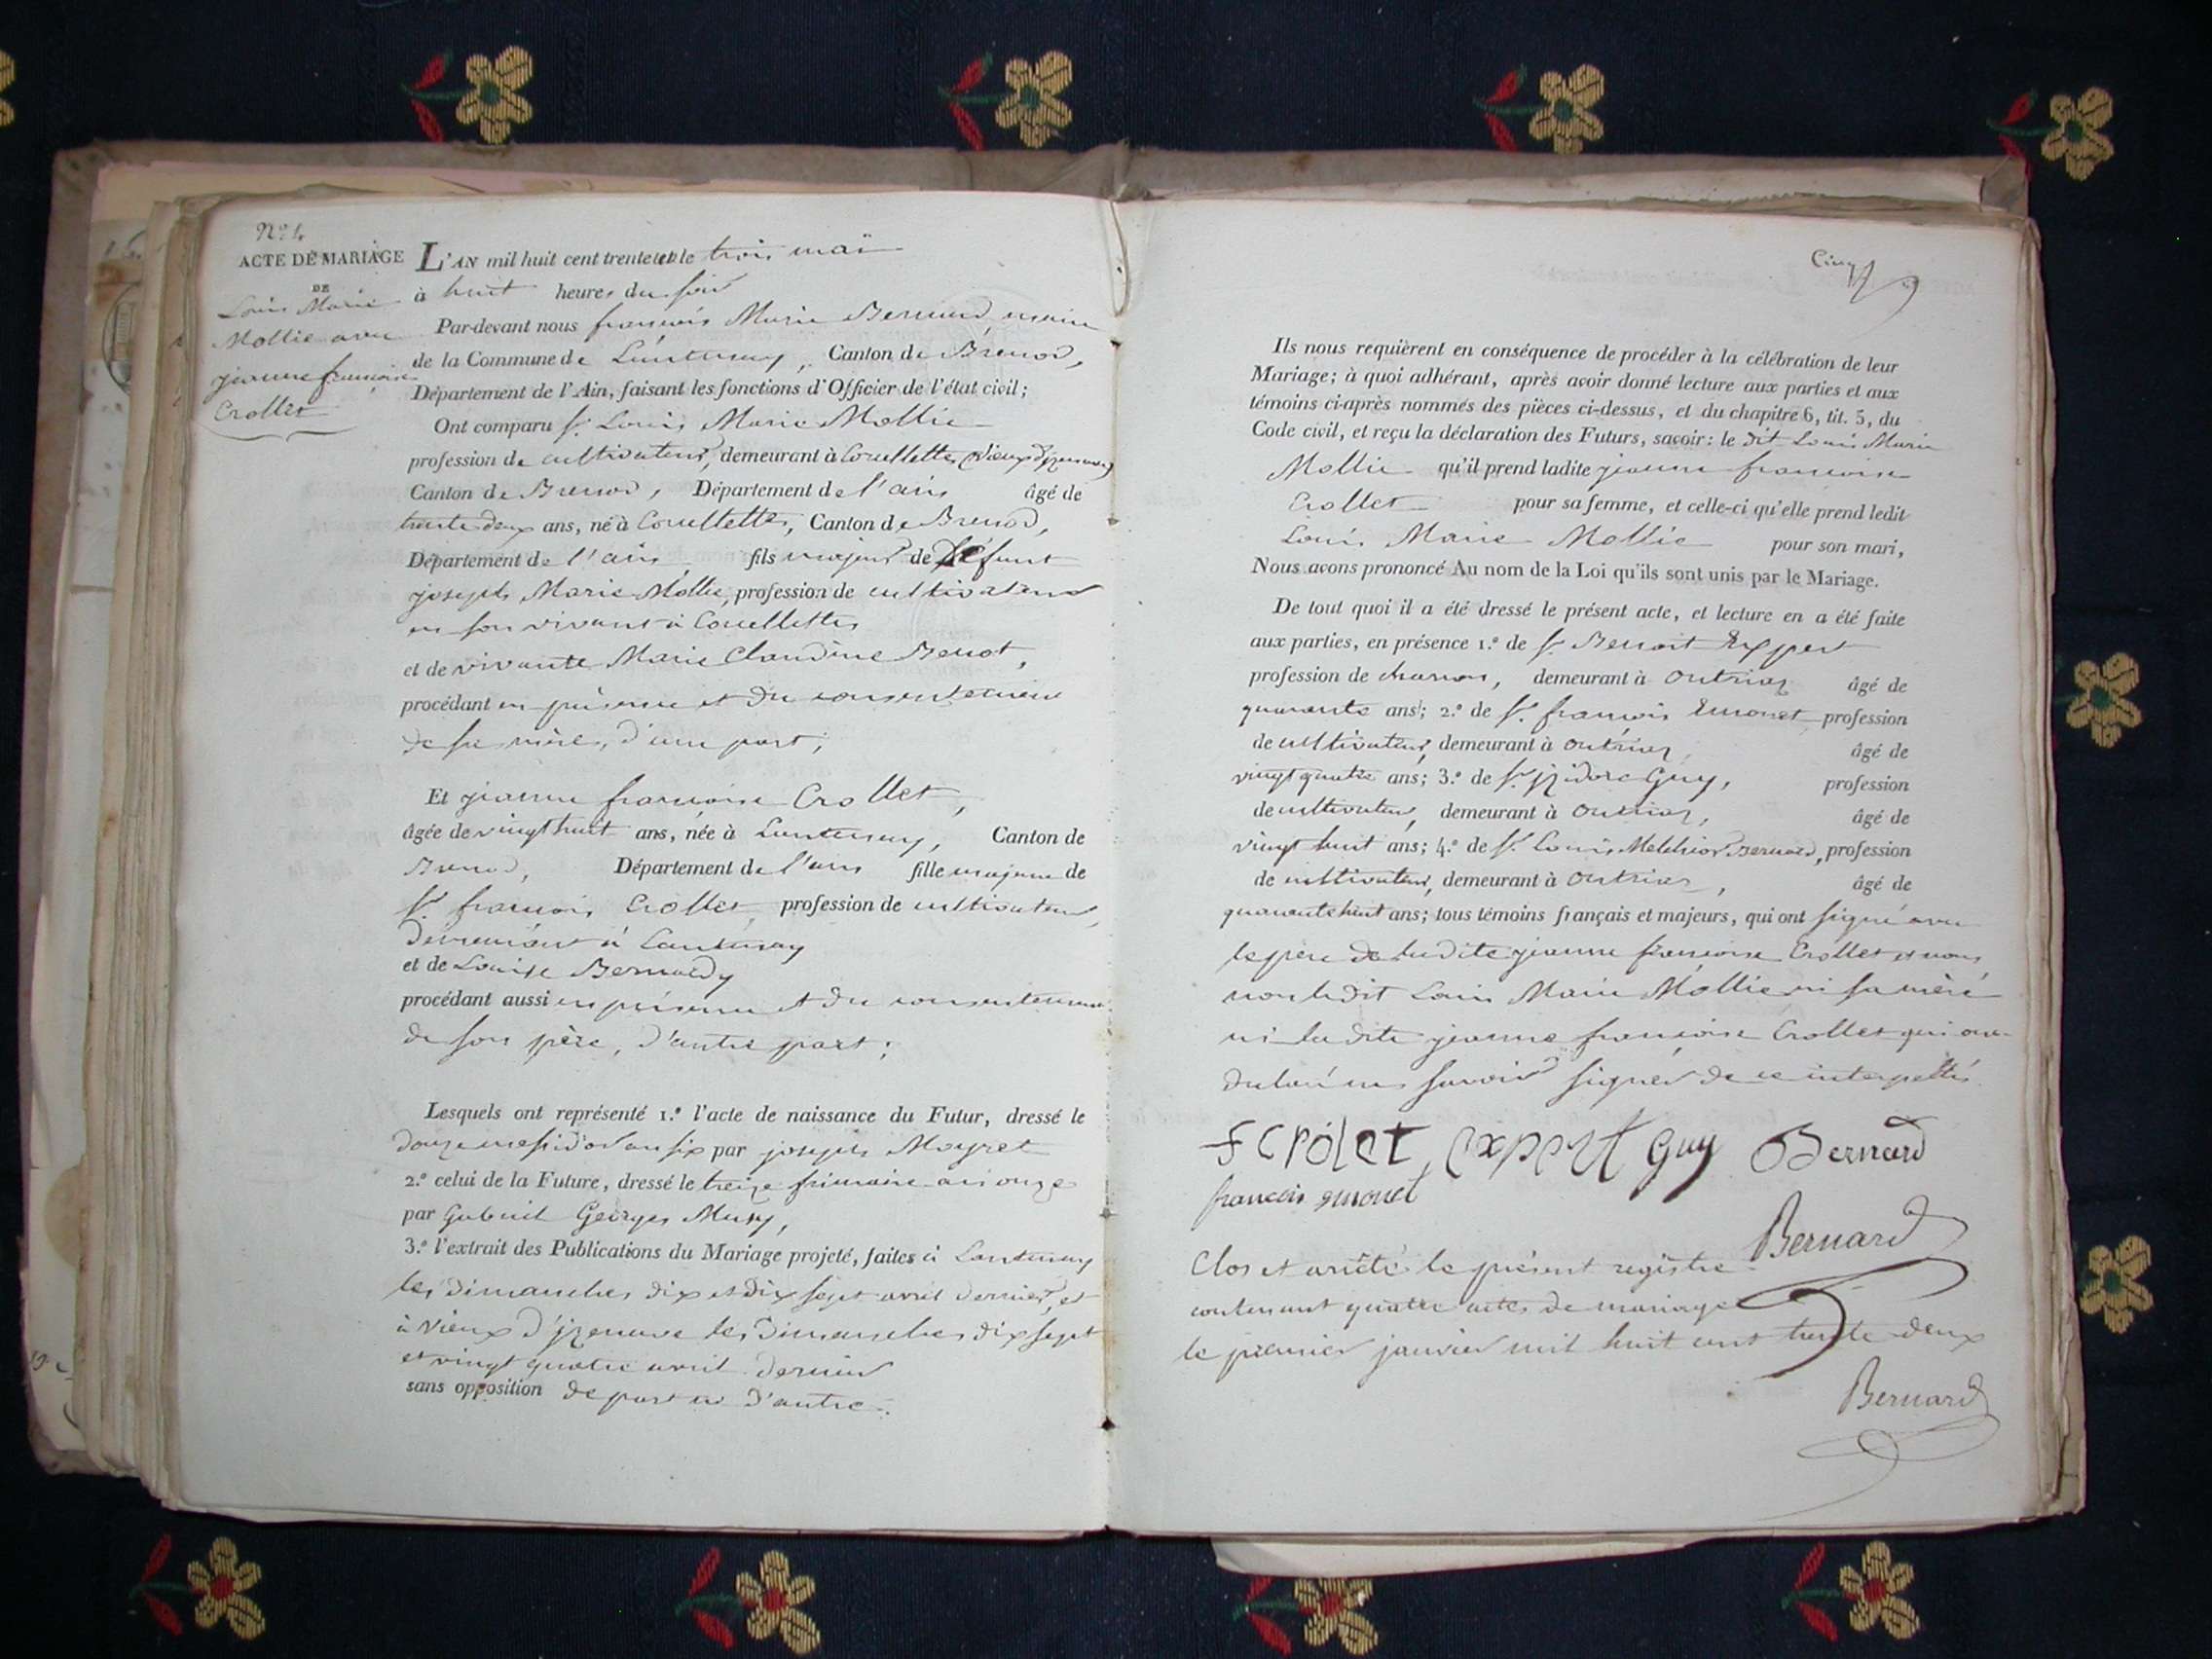 N.º 4
ACTE DE MARIAGE
DE
Louis Marie
Mollie avec
jeanne françoise
Crollet
L'AN mil huit cent trente et le trois mai
à huit heures du soir
Par-devant nous françois Marie Bernard maire
de la Commune de Lantenay, Canton de Brenod,
Département de l'Ain, faisant les fonctions d'Officier de l'état civil;
Ont comparu s.r Louis Marie Mollie
profession de cultivateur, demeurant à Corcellettes
Canton de Brenod, Département de l'ain âgé de
trente deux ans, né à Corcellettes, Canton de Brenod,
Département de l'ain fils majeur de défunt
joseph Marie Mollie, profession de cultivateur
en son vivant à Corcellettes
et de vivante Marie Claudine Benot,
procédant en présence et du consentement
de sa mère, d'une part;
Et jeanne françoise Crollet,
âgée de vingt huit ans, née à Lantenay, Canton de
Brenod, Département de l'ain fille majeure de
s.r françois Crollet, profession de cultivateur,
demeurant à Lantenay
et de Louise Bernardy
procédant aussi en présence et du consentement
de son père, d'autre part;
Lesquels ont représenté 1.º l'acte de naissance du Futur, dressé le
douze messidor an six par joseph Moyret
2.º celui de la Future, dressé le treize frimaire an onze
par Gabriel Georges Musy,
3.º l'extrait des Publications du Mariage projeté, faites à Lantenay
les dimanches dix et dix sept avril dernier, et
à Vieux d'jzenave les dimanches dix sept
et vingt quatre avril dernier
sans opposition de part ni d'autre.
Cinq
Ils nous requièrent en conséquence de procéder à la célébration de leur
Mariage; à quoi adhérant, après avoir donné lecture aux parties et aux
témoins ci-après nommés des pièces ci-dessus, et du chapitre 6, tit. 5, du
Code civil, et reçu la déclaration des Futurs, savoir: le dit Louis Marie
Mollie qu'il prend ladite jeanne françoise
Crollet pour sa femme, et celle-ci qu'elle prend ledit
Louis Marie Mollie pour son mari,
Nous avons prononcé Au nom de la Loi qu'ils sont unis par le Mariage.
De tout quoi il a été dressé le présent acte, et lecture en a été faite
aux parties, en présence 1.º de s.r Benoit Expert
profession de charron, demeurant à Outriaz âgé de
quarante ans; 2.º de s.r françois Emonet profession
de cultivateur, demeurant à Outriaz, âgé de
vingt quatre ans; 3.º de s.r jzidore Guy, profession
de cultivateur, demeurant à Outriaz, âgé de
vingt huit ans; 4.º de s.r Louis Melchior Bernard, profession
de cultivateur, demeurant à Outriaz, âgé de
quarante huit ans; tous témoins français et majeurs, qui ont signé avec
le père de ladite jeanne françoise Crollet et nous
non ledit Louis Marie Mollie ni sa mère
ni la dite jeanne françoise Crollet qui ont
déclaré ne savoir signer de ce interpellés.
F Crolet, expert Guy Bernard
françois emonet
Bernard
Clos et arrêté le présent registre
contenant quatre actes de mariage
le premier janvier mil huit cent trente deux
Bernard